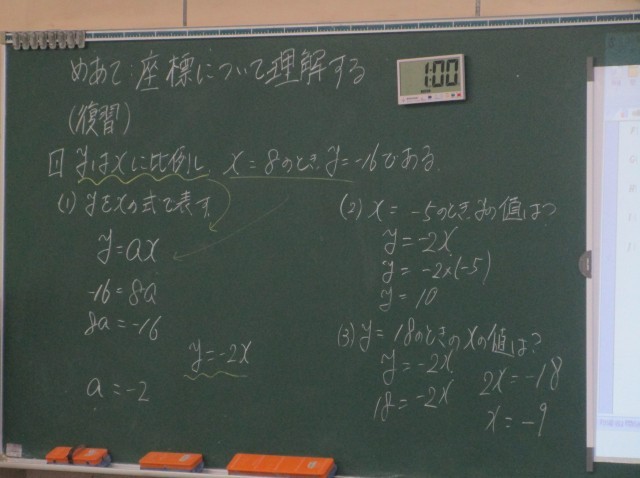 めあて:座標について理解する
1:00
(復習)
1 yはxに比例し x=8のときy=-16である.
(1) yをxの式で表す.
y=ax
-16=8a
8a=-16
y=-2x
a=-2
(2) x=-5のときyの値は?
y=-2x
y=-2×(-5)
y=10
(3) y=18のときのxの値は?
y=-2x
18=-2x
2x=-18
x=-9